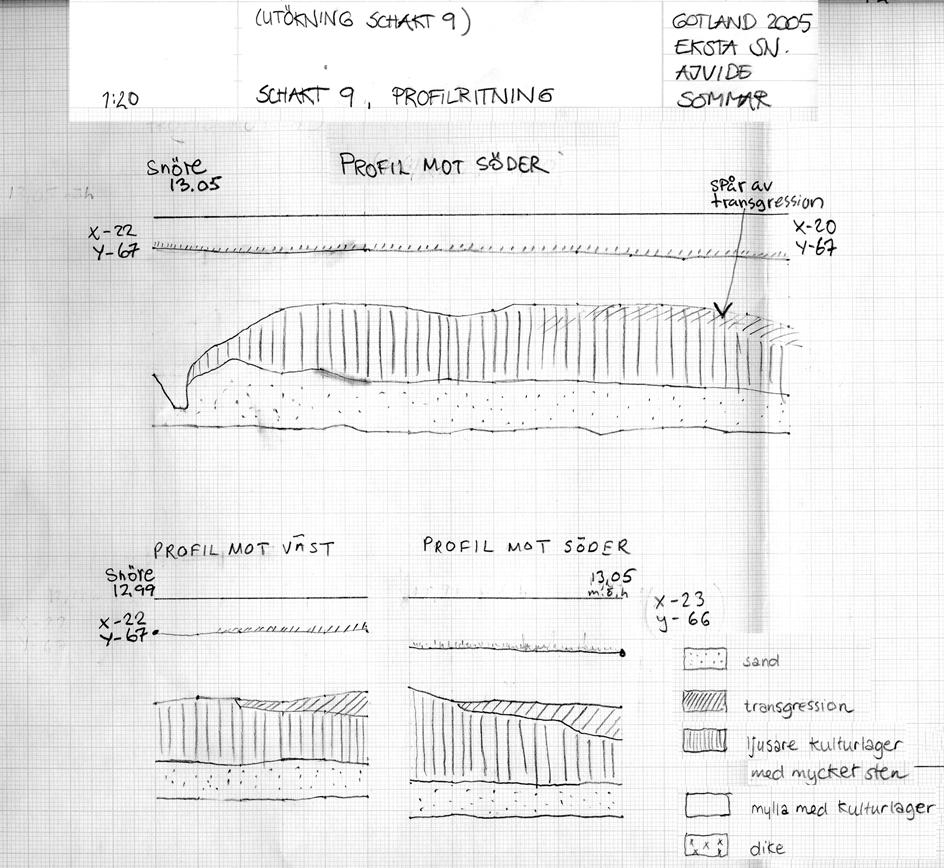 (UTÖKNING SCHAKT 9)
1:20
SCHAKT 9, PROFILRITNING
GOTLAND 2005
EKSTA SN.
AJVIDE
SOMMAR
Snöre
13.05
PROFIL MOT SÖDER
spår av
transgression
X-22
Y-67
X-20
Y-67
PROFIL MOT VÄST
PROFIL MOT SÖDER
Snöre
12,99
13,05
m.ö.h
X-22
Y-67
X-23
y-66
sand
transgression
ljusare kulturlager
med mycket sten
mylla med kulturlager
dike